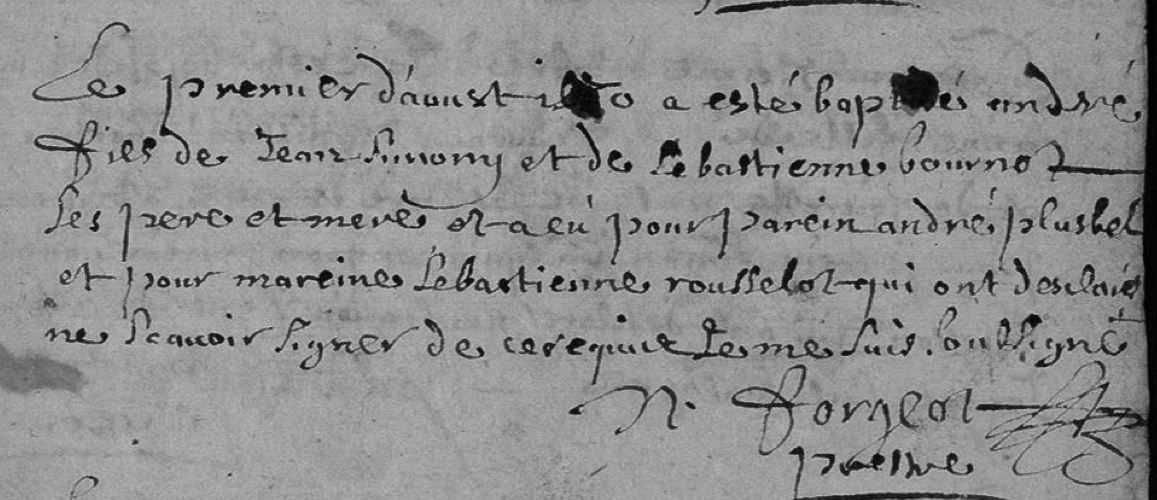 Le premier d'aoust a esté baptisé andré
fils de Jean Simony et de Sebastienne bournot
ses pere et mere et a eu pour parein andré plusbel
et pour mareine Sebastienne rousselot qui ont desclaré
ne scavoir signer de ce requis Je me suis soubsigné
N. Forgeot
prestre